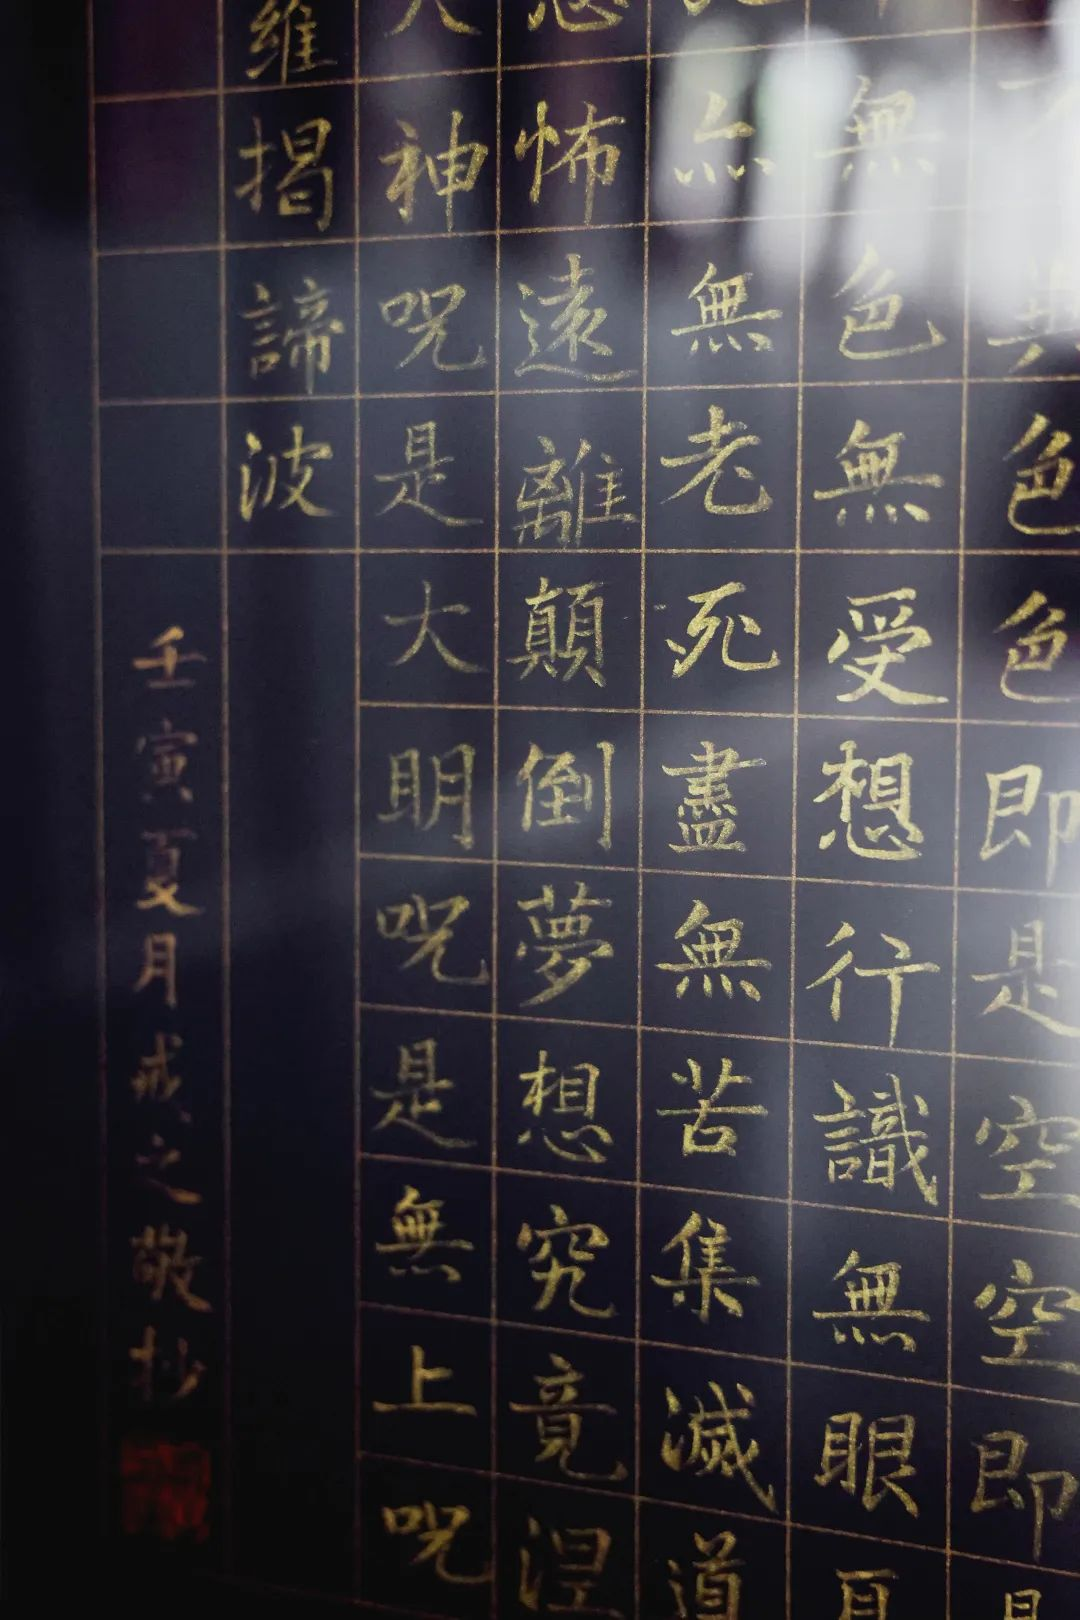 色色即是空空即
無色無受想行識無眼
亦無老死盡無苦集滅道
怖遠離顛倒夢想究竟涅
神咒是大明咒是無上咒
維揭諦波
壬寅夏月戒之敬抄